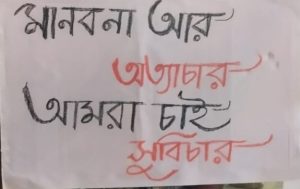 মানবনা আর
অত্যাচার
আমরা চাই
সুবিচার